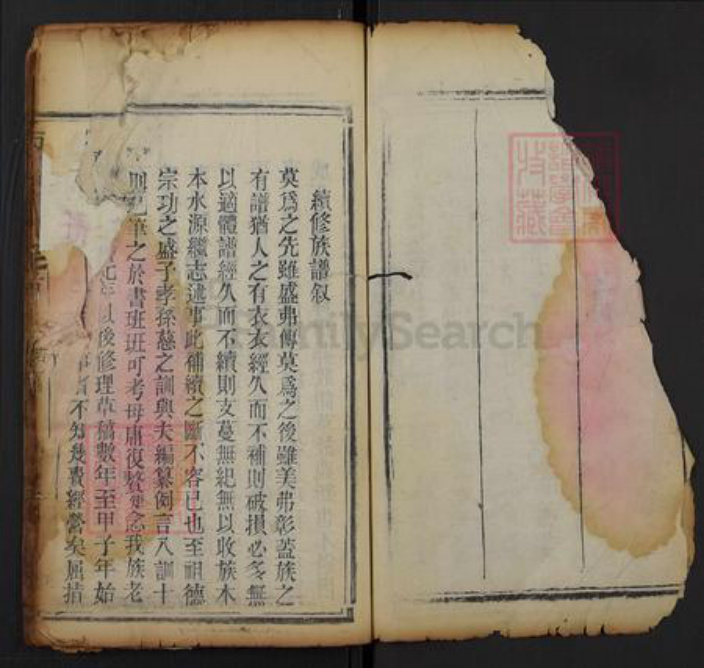 續修族譜叙
莫爲之先雖盛弗傳莫爲之後雖美弗彰蓋族之
有譜猶人之有衣衣經久而不補則破損必多無
以適體譜經久而不續則支蔓無紀無以收族木
本水源繼志述事此補續之斷不容已也至祖德
宗功之盛子孝孫慈之訓與夫編纂例言八訓十
則已筆之於書班班可考毋庸復贅第念我族老
年以後修理草稿數年至甲子年始
不知幾費經營矣屈指
FamilySearch